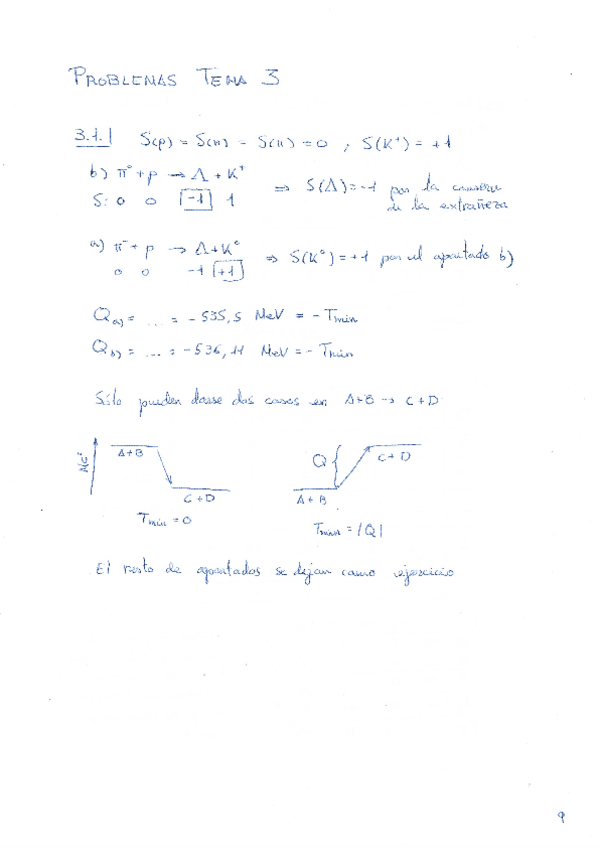 PROBLEMAS TEMA 3
3.1.1 S(p) = S(n) = S(π) = 0 , S(K⁺) = +1
b) π⁺ + p → Λ + K⁺ ⇒ S(Λ) = -1 por la
S: 0 0 -1 1 de la extrañeza
a) π⁻ + p → Λ + K⁰ ⇒ S(K⁰) = +1 por el apartado b)
0 0 -1 +1
Q a) = ... = - 535,5 MeV = - Tmin
Q b) = ... = - 536,11 MeV = - Tmin
Sólo pueden darse dos casos en A+B → C+D
Mc² A+B C+D Q C+D A+B
Tmin = 0 Tmin = |Q|
El resto de apartados se dejan como ejercicio
9